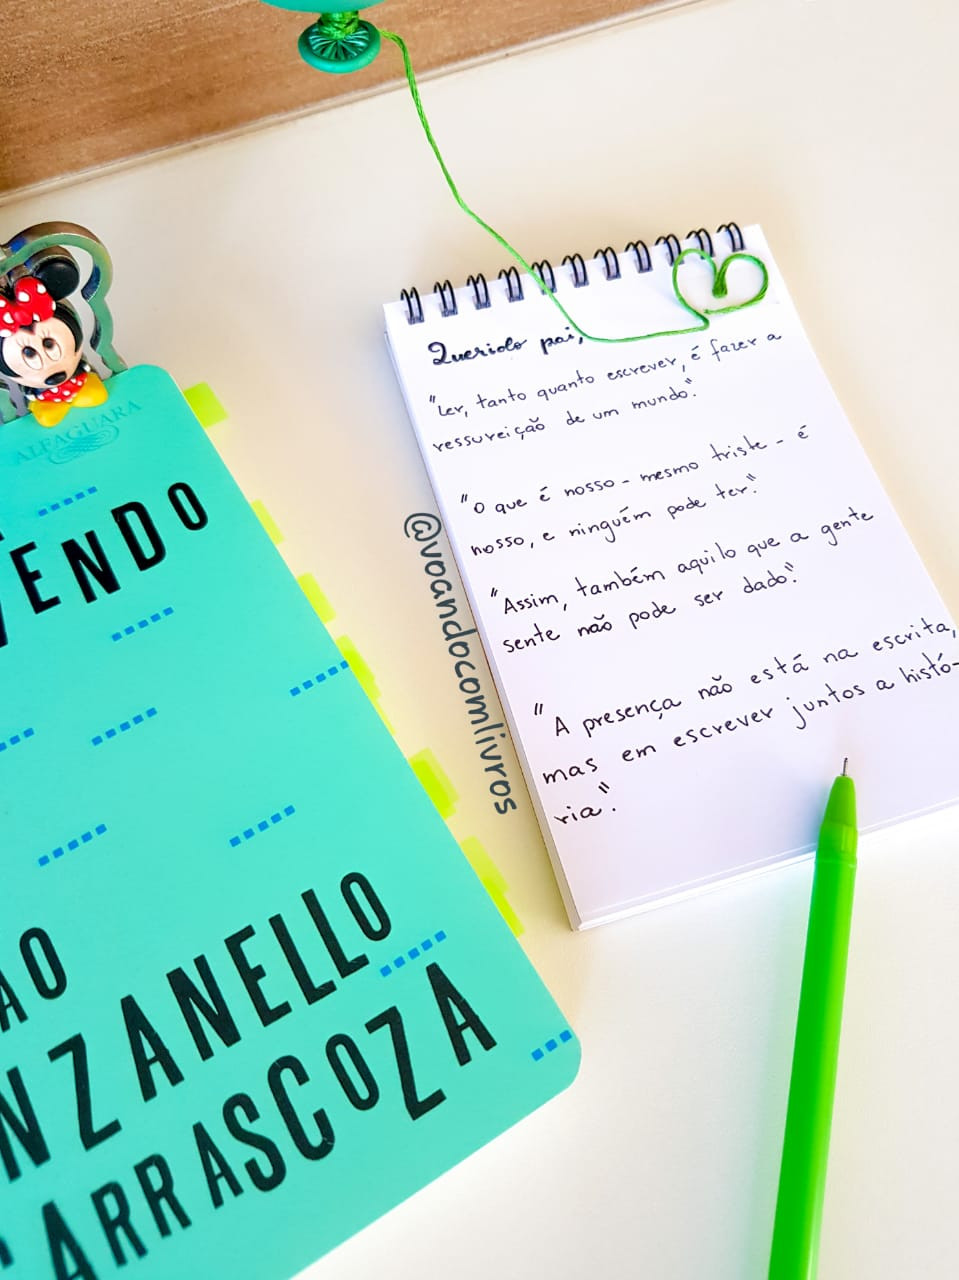 ALFAGUARA
VENDO
ÃO
NZANELLO
CARRASCOZA
@voandocomlivros
Querido pai,
"Ler, tanto quanto escrever, é fazer a
ressureição de um mundo."
"O que é nosso - mesmo triste - é
nosso, e ninguém pode ter."
"Assim, também aquilo que a gente
sente não pode ser dado."
"A presença não está na escrita,
mas em escrever juntos a histó-
ria".